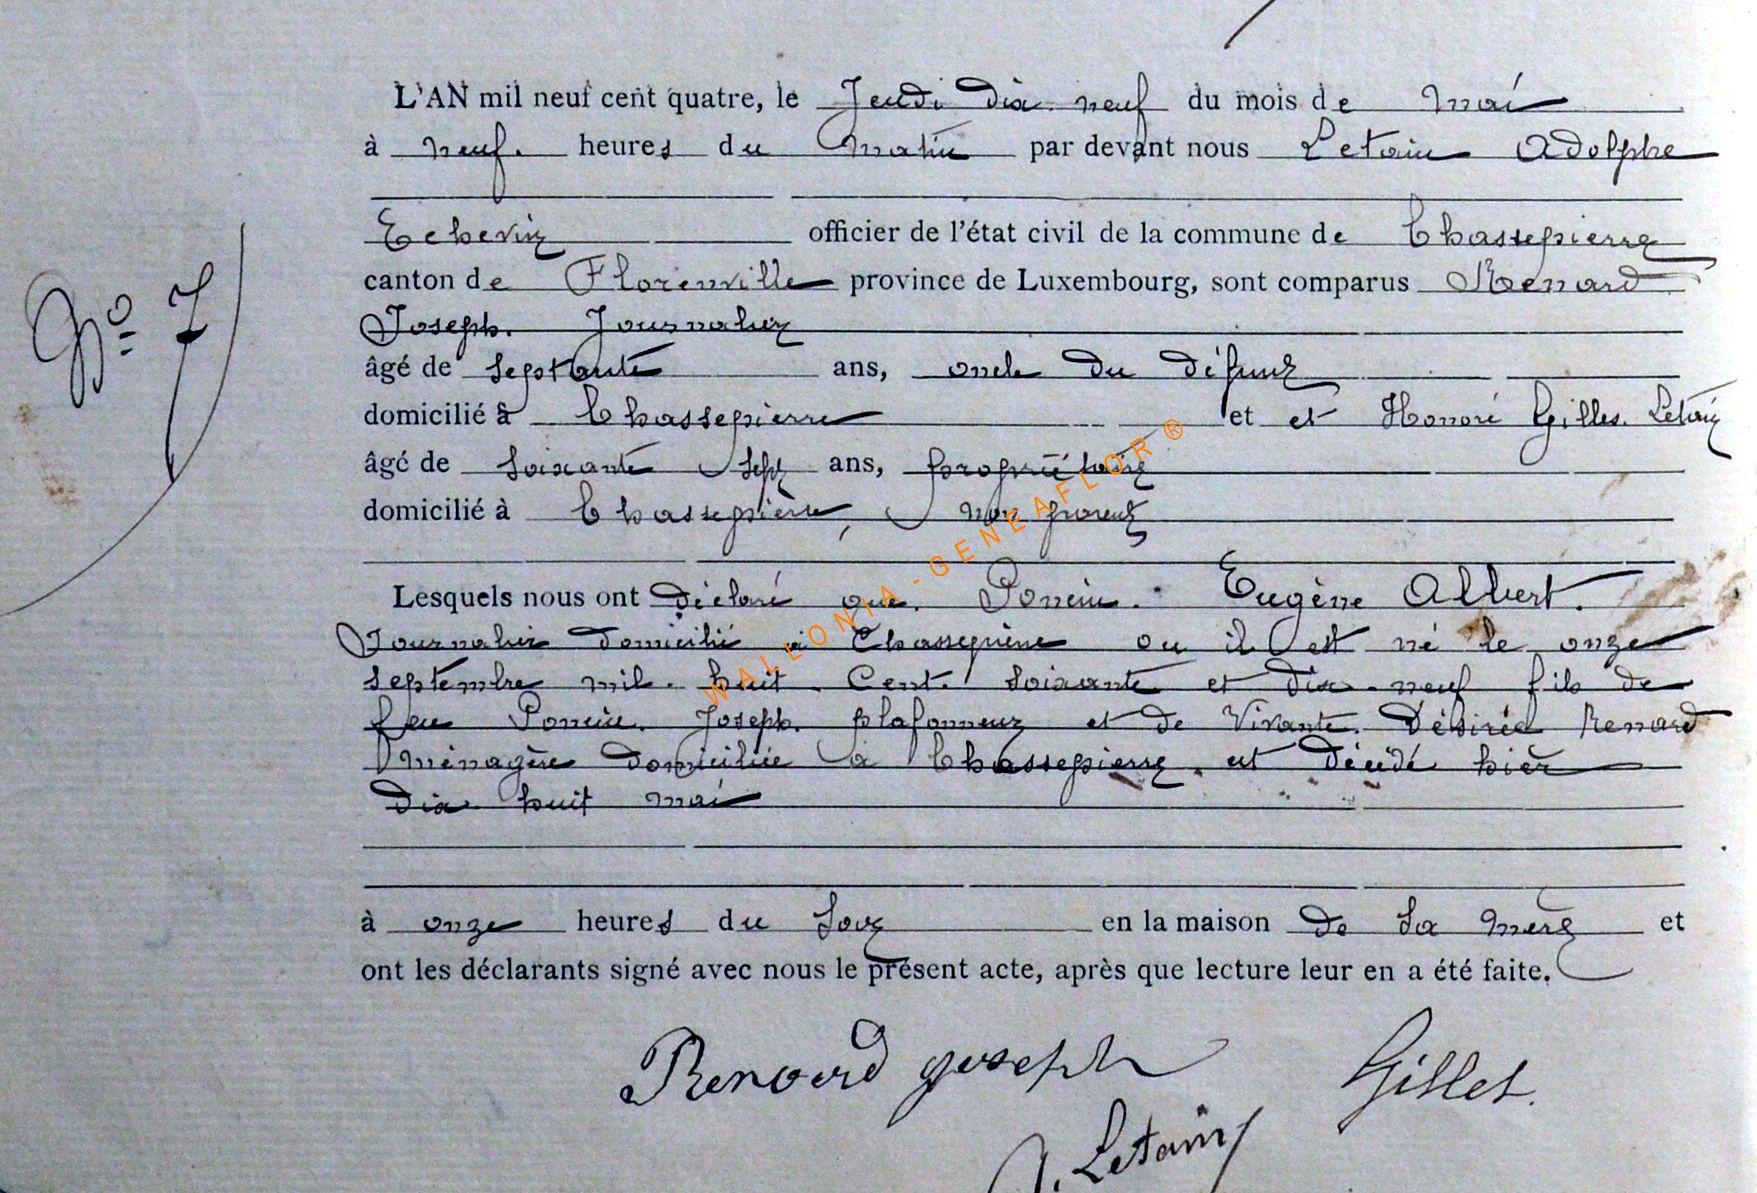 L'AN mil neuf cent quatre, le Jeudi dix neuf du mois de mai
à neuf. heures du matin par devant nous Letain Adolphe
Echevin officier de l'état civil de la commune de Chassepierre
canton de Florenville province de Luxembourg, sont comparus Renard
Joseph. Journalier
âgé de septante ans, oncle du défunt
domicilié à Chassepierre et et Honoré Gilles. Letain
Nº 7
âgé de soixante sept ans, propriétaire
domicilié à Chassepierre, non parent
Lesquels nous ont déclaré que. Poncin. Eugène Albert.
Journalier domicilié à Chassepierre ou il est né le onze
septembre mil. huit. Cent. soixante et dix-neuf fils de
feu Poncin. Joseph. plafonneur et de Vivante. Désirée Renard
Ménagère domiciliée à Chassepierre. est décédé hier
dix huit mai
à onze heures du soir en la maison de sa mère et
ont les déclarants signé avec nous le présent acte, après que lecture leur en a été faite.
Renard joseph Gilles.
Letain
WALLONIA-GENEAFLOR®